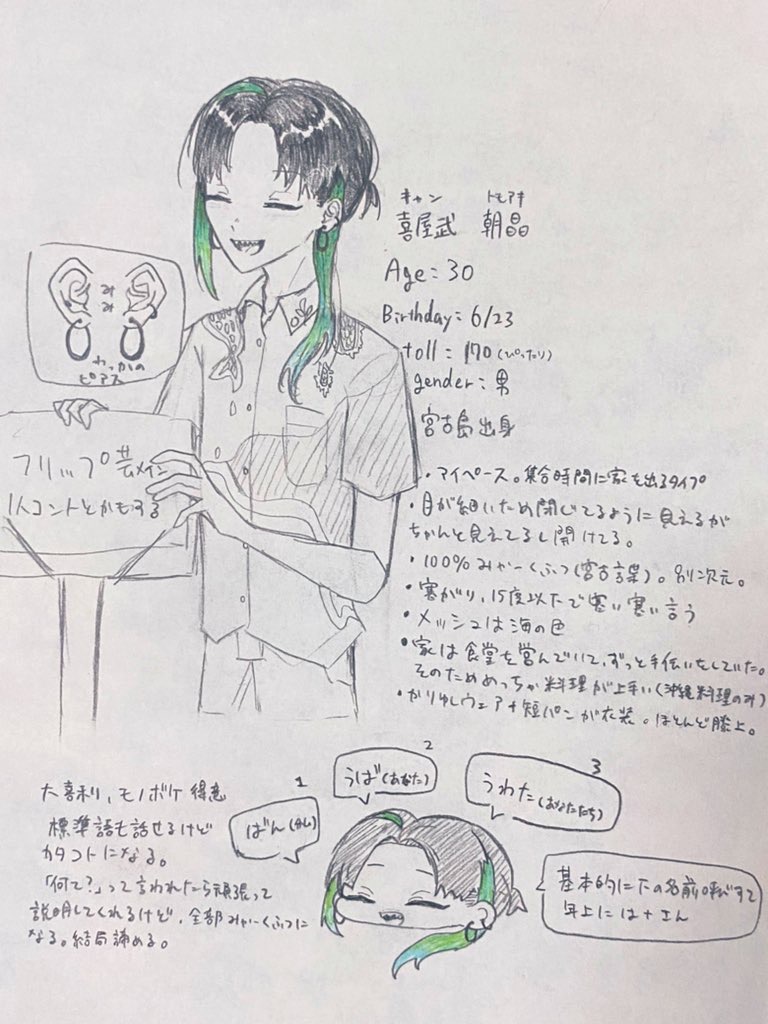 キャン トモアキ
喜屋武 朝晶
Age: 30
Birthday: 6/23
toll: 170(ぴったり)
gender: 男
宮古島出身
みみ
わっかの
ピアス
フリップ芸メイン
1人コントとかもする
・マイペース。集合時間に家を出るタイプ
・目が細いため閉じてるように見えるが
ちゃんと見えてるし開けてる。
・100%みゃーくふつ(宮古言葉)。別次元。
・寒がり、15度以下で寒い寒い言う
・メッシュは海の色
・家は食堂を営んでいて、ずっと手伝いをしていた。
そのためめっちゃ料理が上手い(沖縄料理のみ)
・かりゆしウェア+短パンが衣装。ほとんど膝上。
大喜利、モノボケ得意
標準語も話せるけど
カタコトになる。
「何て?」って言われたら頑張って
説明してくれるけど、全部みゃーくふつに
なる。結局諦める。
1
ばん(私)
2
うば(あなた)
3
うわた(あなたたち)
基本的に下の名前呼びすて
年上には+さん